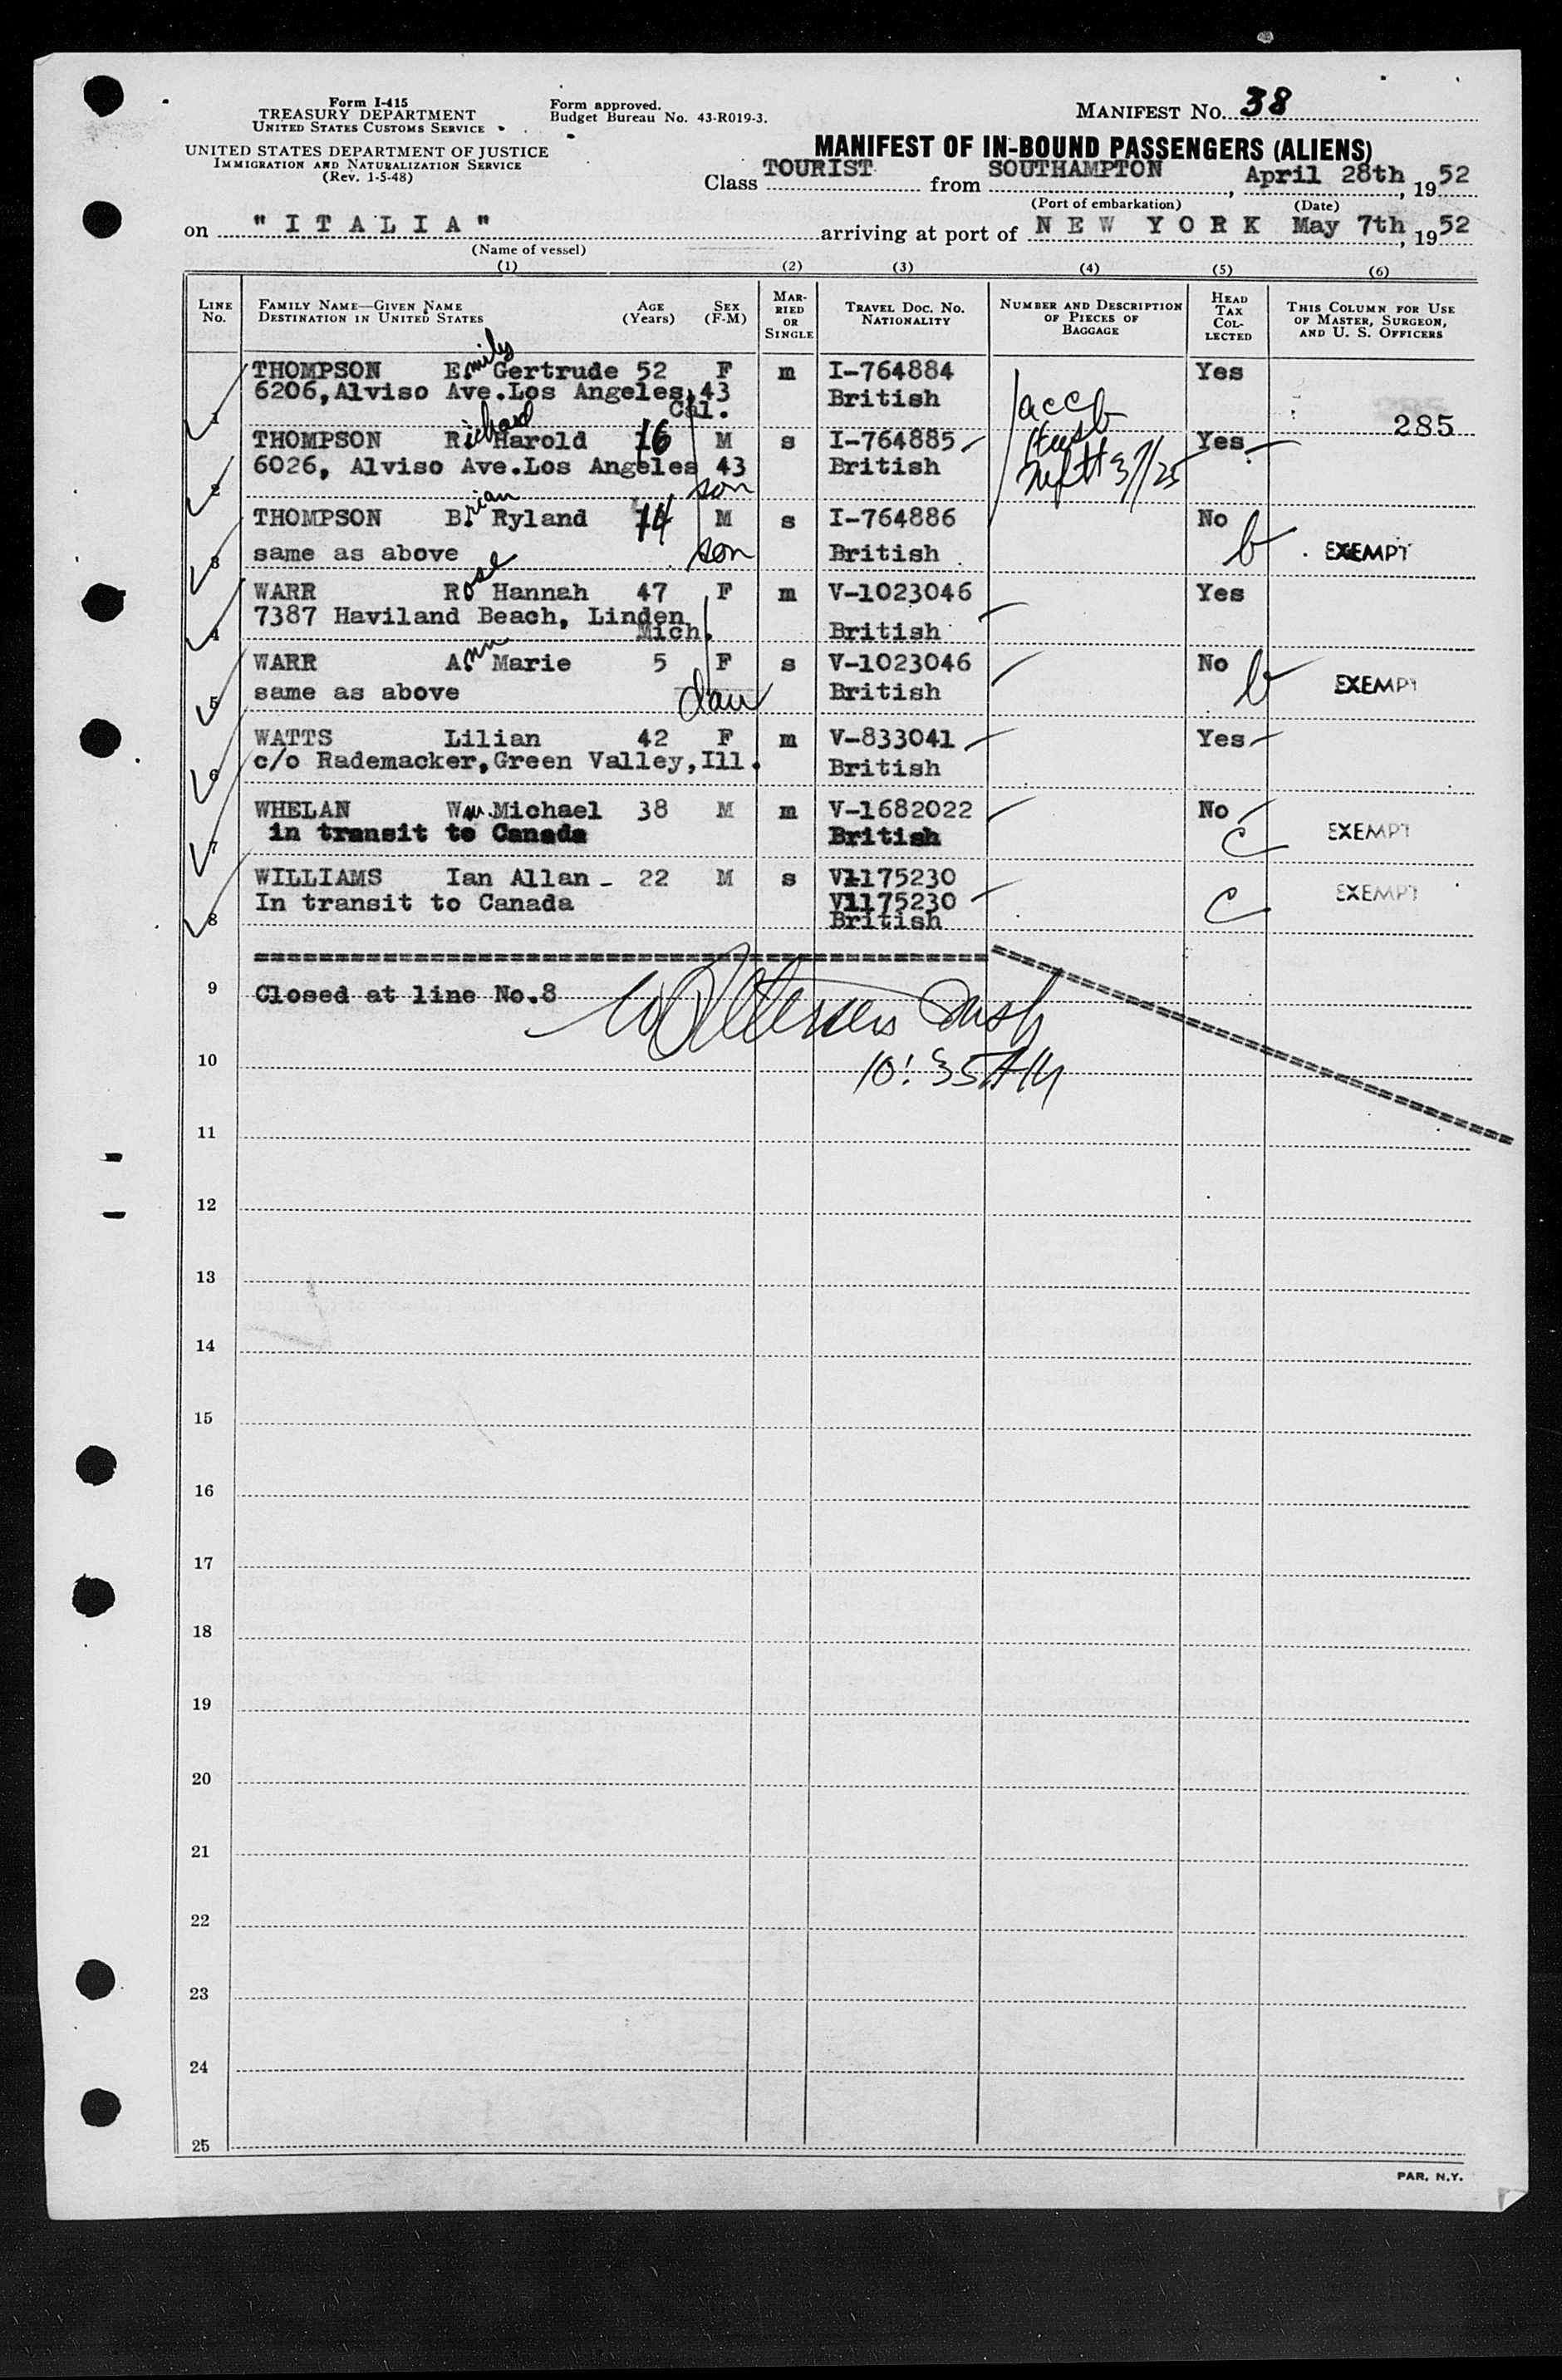 Form I-415
TREASURY DEPARTMENT
UNITED STATES CUSTOMS SERVICE
Form approved.
Budget Bureau No. 43-R019-3.
MANIFEST NO. 38
UNITED STATES DEPARTMENT OF JUSTICE
IMMIGRATION AND NATURALIZATION SERVICE
(Rev. 1-5-48)
MANIFEST OF IN-BOUND PASSENGERS (ALIENS)
Class TOURIST from SOUTHAMPTON, April 28th, 1952
(Port of embarkation) (Date)
on "ITALIA" arriving at port of NEW YORK May 7th, 1952
(Name of vessel)
(1) (2) (3) (4) (5) (6)
LINE NO. FAMILY NAME—GIVEN NAME DESTINATION IN UNITED STATES AGE (Years) SEX (F-M) MARRIED OR SINGLE TRAVEL DOC. NO. NATIONALITY NUMBER AND DESCRIPTION OF PIECES OF BAGGAGE HEAD TAX COLLECTED THIS COLUMN FOR USE OF MASTER, SURGEON, AND U. S. OFFICERS
1 THOMPSON Emily Gertrude 52 F m I-764884 Yes
6206, Alviso Ave. Los Angeles, 43 British acc by
Cal. 285
2 THOMPSON Richard Harold 16 M s I-764885 Husb Yes
6026, Alviso Ave. Los Angeles 43 British
son
3 THOMPSON Brian Ryland 14 M s I-764886 No
same as above son British b EXEMPT
4 WARR Rose Hannah 47 F m V-1023046 Yes
7387 Haviland Beach, Linden British
Mich.
5 WARR Ann Marie 5 F s V-1023046 No
same as above dau British b EXEMPT
6 WATTS Lilian 42 F m V-833041 Yes
c/o Rademacker, Green Valley, Ill. British
7 WHELAN Wm. Michael 38 M m V-1682022 No
in transit to Canada British C EXEMPT
8 WILLIAMS Ian Allan - 22 M s V1175230
In transit to Canada V1175230 C EXEMPT
British
9 Closed at line No.8
10 10:35 AM
11
12
13
14
15
16
17
18
19
20
21
22
23
24
25
PAR. N.Y.